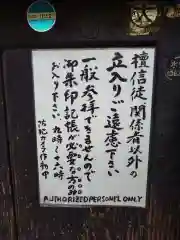 檀信徒関係者以外の
立入りご遠慮下さい
一般参拝できませんので
御朱印記帳が必要な方のみ
お入り下さい 九時〜十六時
防犯カメラ作動中
AUTHORIZED PERSONEL ONLY